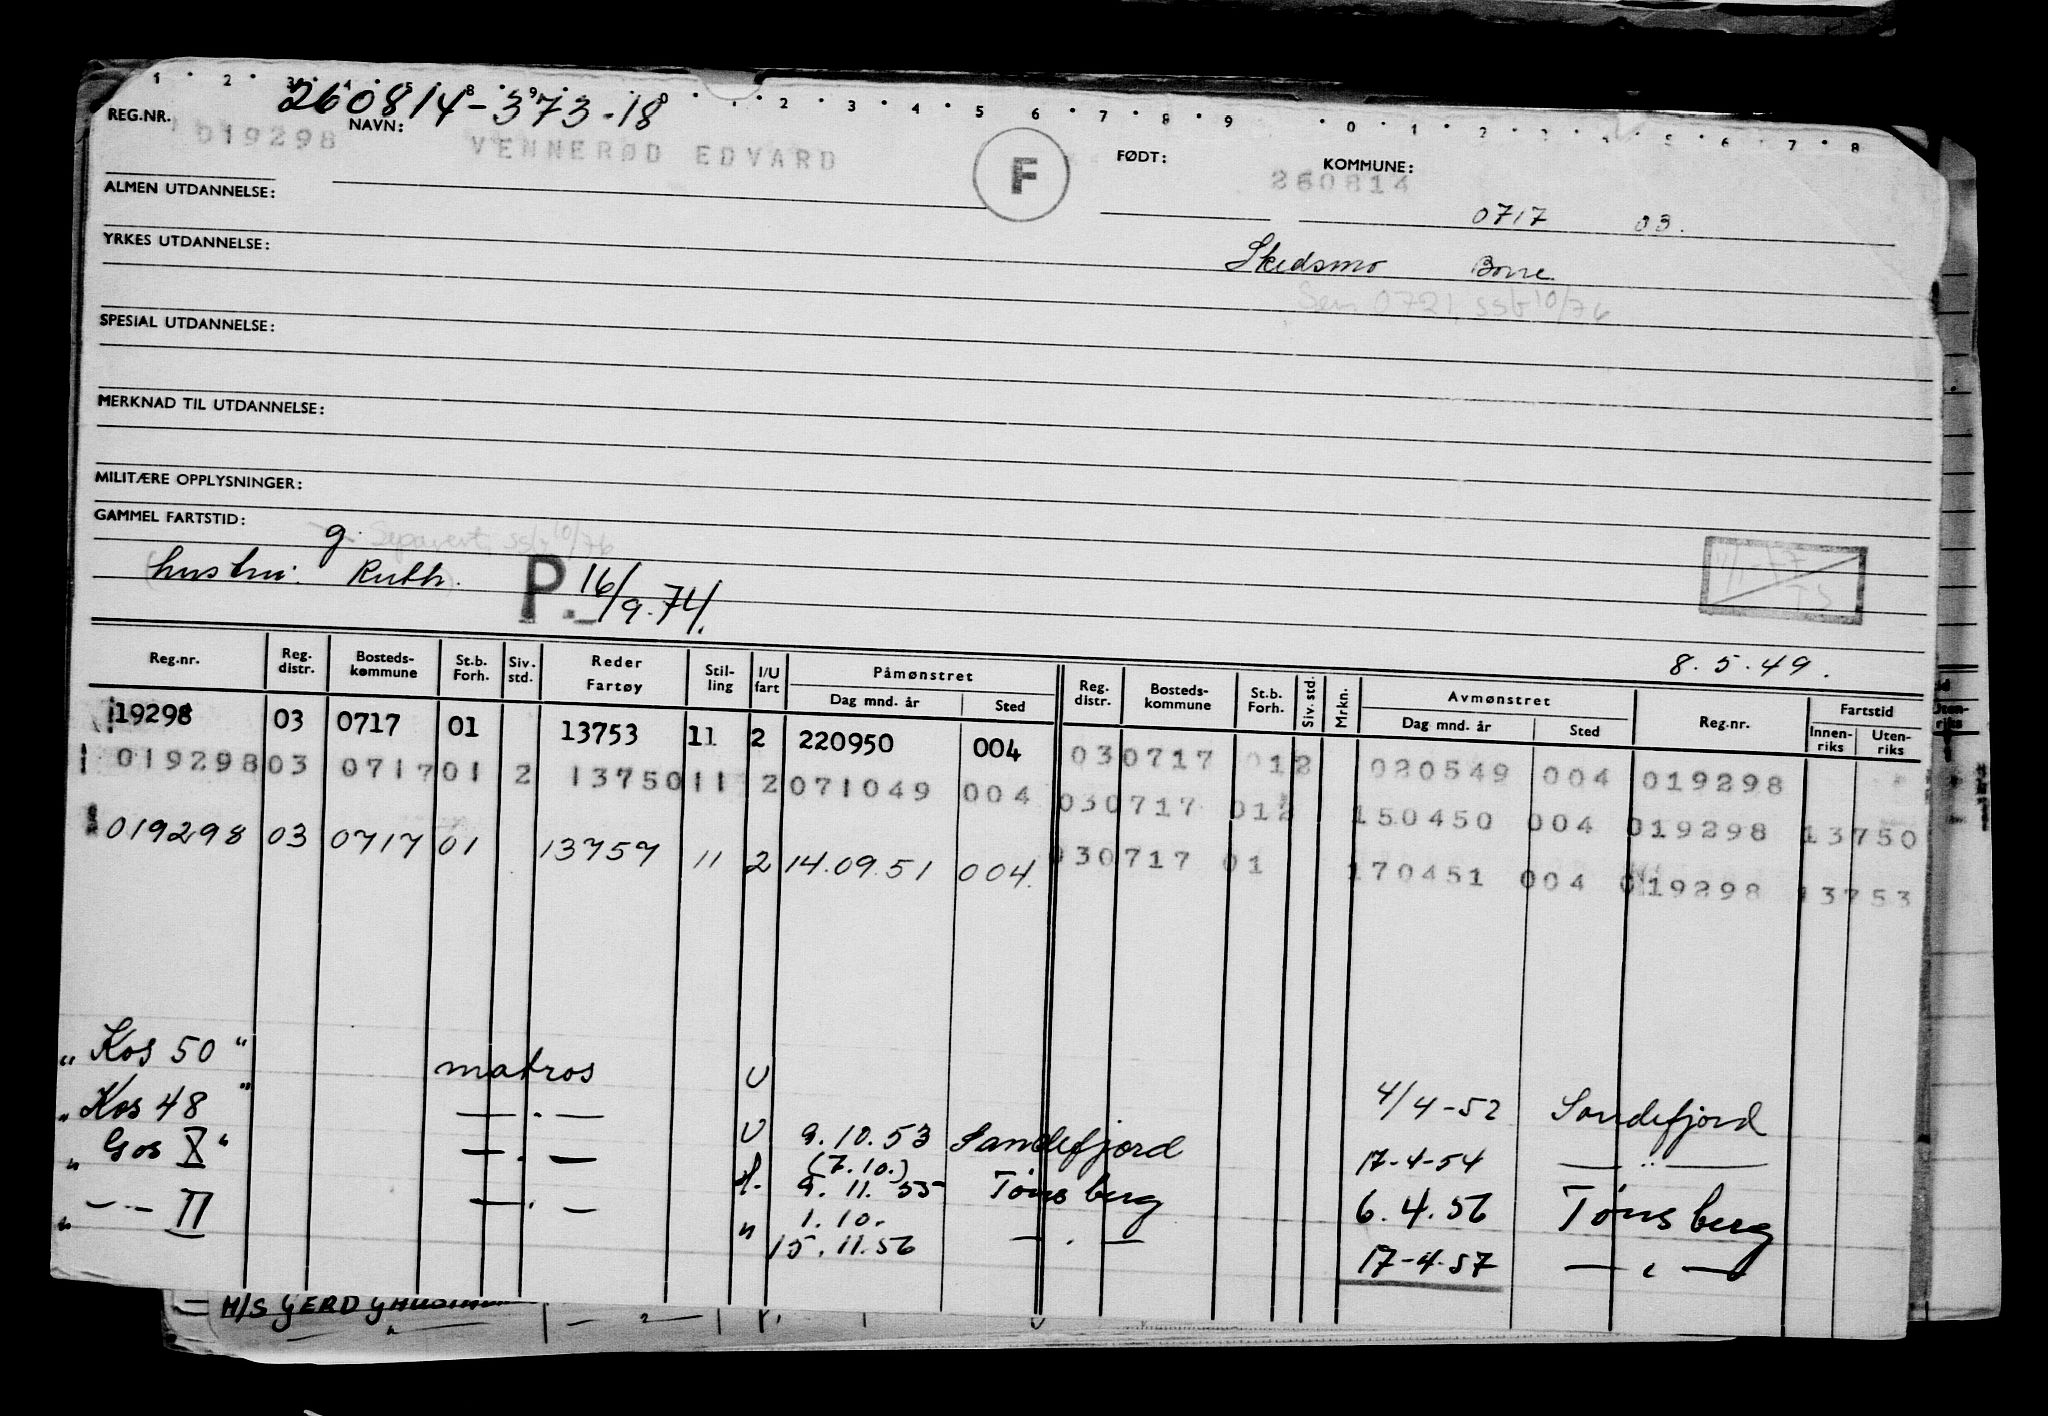 1 2 3 4 5 8 9 0 1 2 3 4 5 6 7 8 9 0 1 2 3 4 5 6 7 8
260814-373-18
REG.NR. NAVN: FØDT: KOMMUNE:
019298 VENNERØD EDVARD F 260814
0717 03.
ALMEN UTDANNELSE:
YRKES UTDANNELSE: Skedsmo Borre
Sem 0721, ssb 10/76
SPESIAL UTDANNELSE:
MERKNAD TIL UTDANNELSE:
MILITÆRE OPPLYSNINGER:
GAMMEL FARTSTID: g. Separert, ssb 10/76
(hustru: Ruth.) P. 16/9.74.
8.5.49.
Reg.nr. Reg. distr. Bosteds-kommune St.b. Forh. Siv. std. Reder Fartøy Stil-ling I/U fart Påmønstret Dag mnd. år Sted Reg. distr. Bosteds-kommune St.b. Forh. Siv. std. Mrkn. Avmønstret Dag mnd. år Sted Reg.nr. Fartstid Innen-riks Uten-riks
19298 03 0717 01 13753 11 2 220950 004 03 0717 01 2 080549 004 019298
019298 03 0717 01 2 13750 11 2 071049 004 03 0717 01 2 150450 004 019298 13750
019298 03 0717 01 13757 11 2 14.09.51 004. 03 0717 01 170451 004 019298 13753
„Kos 50" matros U 4/4-52 Sandefjord
„Kos 48" — . — U 9.10.53 Sandefjord 17-4-54 — " —
(7.10.)
„Gos X" — . — 9.11.55 Tønsberg 6.4.56 Tønsberg
1.10.
„ — . — II — . — " 15.11.56 — . — 17-4-57 — " —
M/S GERD